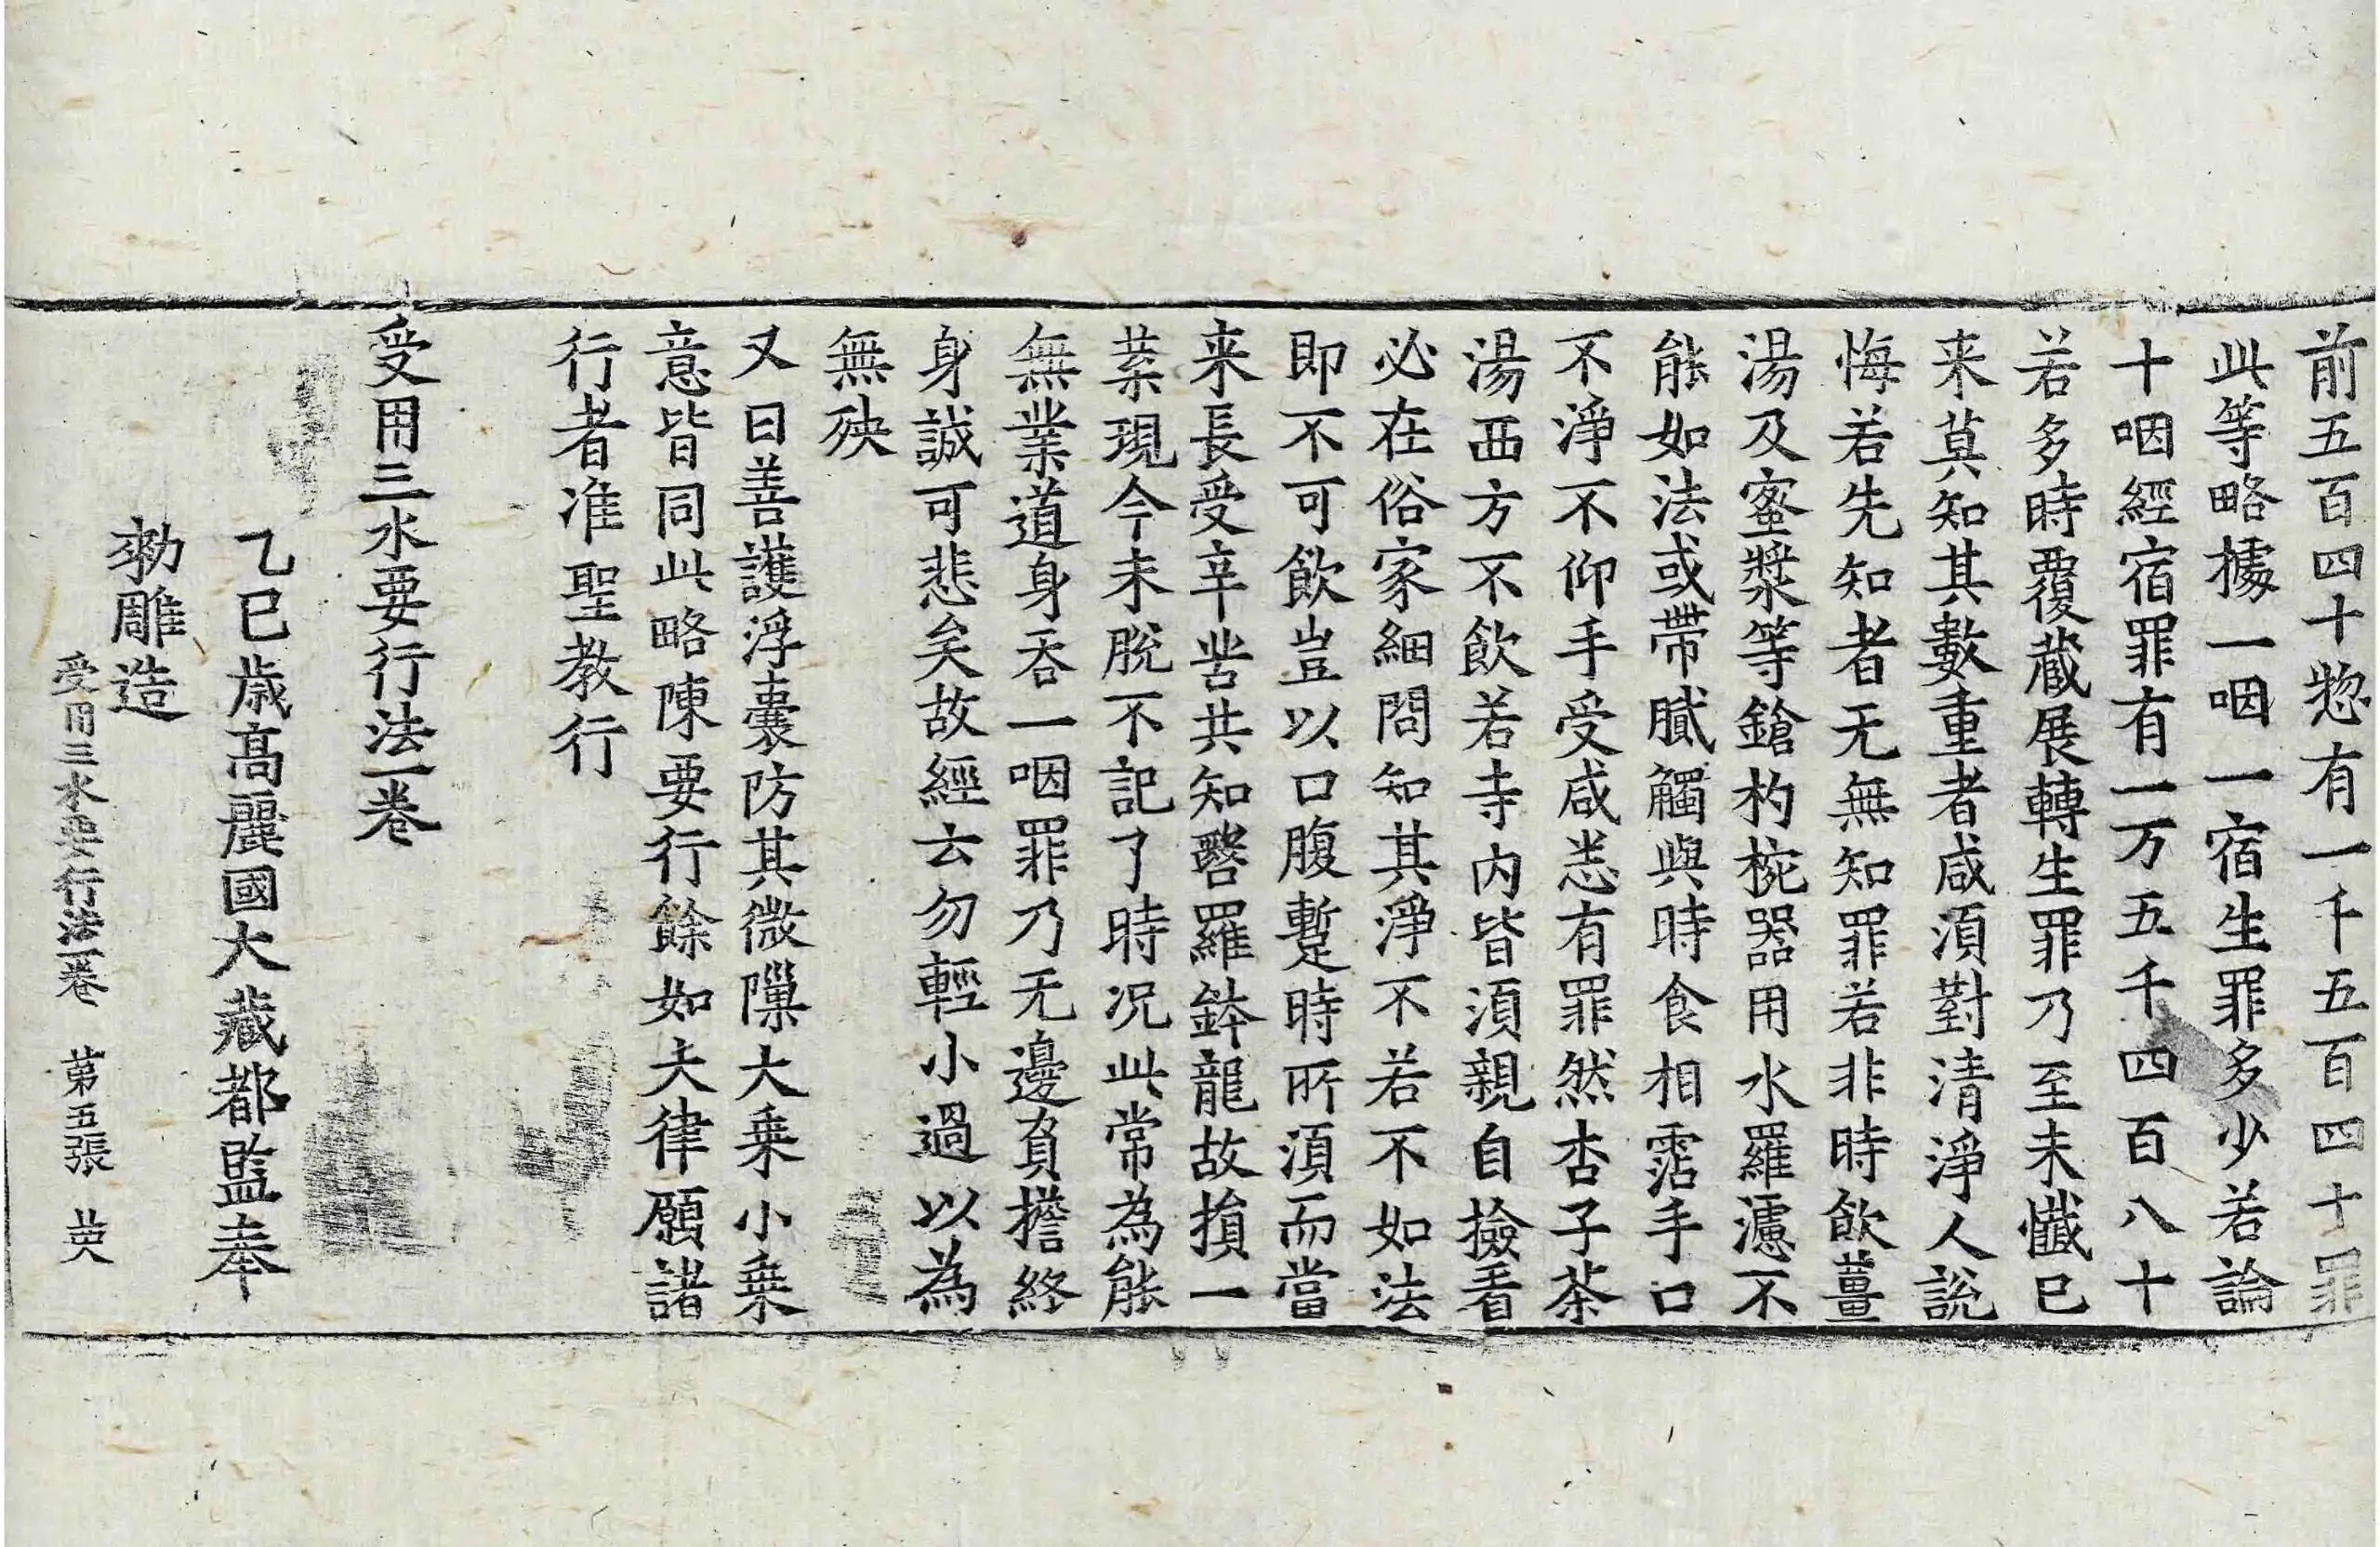 前五百四十惣有一千五百四十罪
此等略據一咽一宿生罪多少若論
十咽經宿罪有一万五千四百八十
若多時覆蔵展轉生罪乃至未懺已
来莫知其數重者咸湏對清淨人說
悔若先知者无無知罪若非時飲薑
湯及蜜漿等鎗杓椀器用水羅濾不
能如法或帶膩觸與時食相霑手口
不淨不仰手受咸恙有罪然杏子茶
湯西方不飲若寺内皆湏親自撿看
必在俗家細問知其淨不若不如法
即不可飲豈以口腹蹔時所湏而當
来長受辛苦共知毉羅鉢龍故損一
葉現今未脫不記了時况此常為能
無業道身吞一咽罪乃无邊負擔終
身誠可悲矣故經云勿輕小過以為
無殃
又曰善護浮囊防其微隟大乗小乗
意皆同此略陳要行餘如大律願諸
行者准聖教行
受用三水要行法一卷
乙巳歳髙麗國大藏都監奉
勑雕造
受用三水要行法一卷 苐五張 英